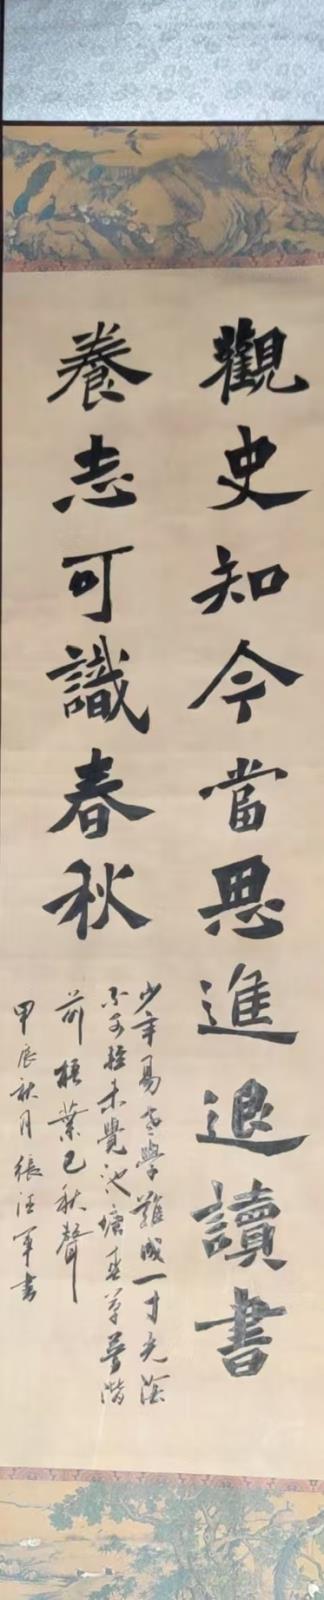 觀史知今當思進退讀書
養志可識春秋
少年易老學難成一寸光陰
不可輕未覺池塘春草夢階
前梧葉已秋聲
甲辰秋月張汪軍書